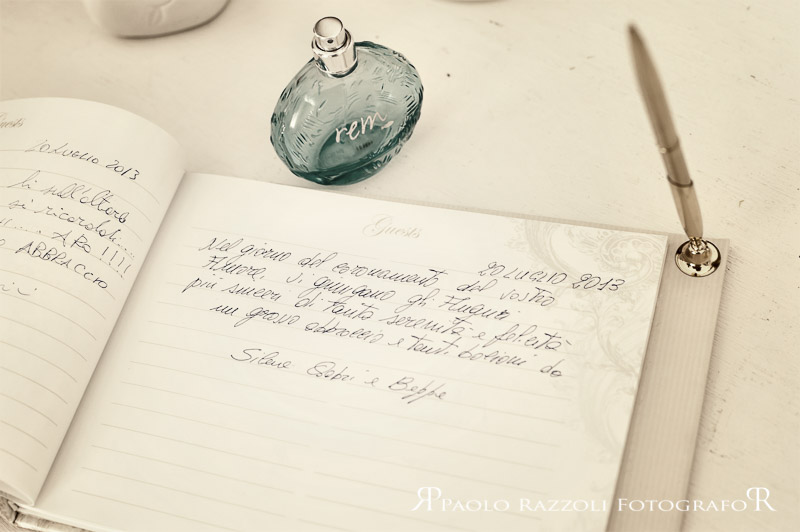 Guests
20 LUGLIO 2013
si ricordati....
ABBRACCIO
rem
Guests
20 LUGLIO 2013
Nel giorno del coronamento del vostro
Amore, vi giungano gli Auguri
più sinceri di tanta serenità e felicità
un grosso abbraccio e tanti bacioni da
Silene e Beppe
PAOLO RAZZOLI FOTOGRAFO